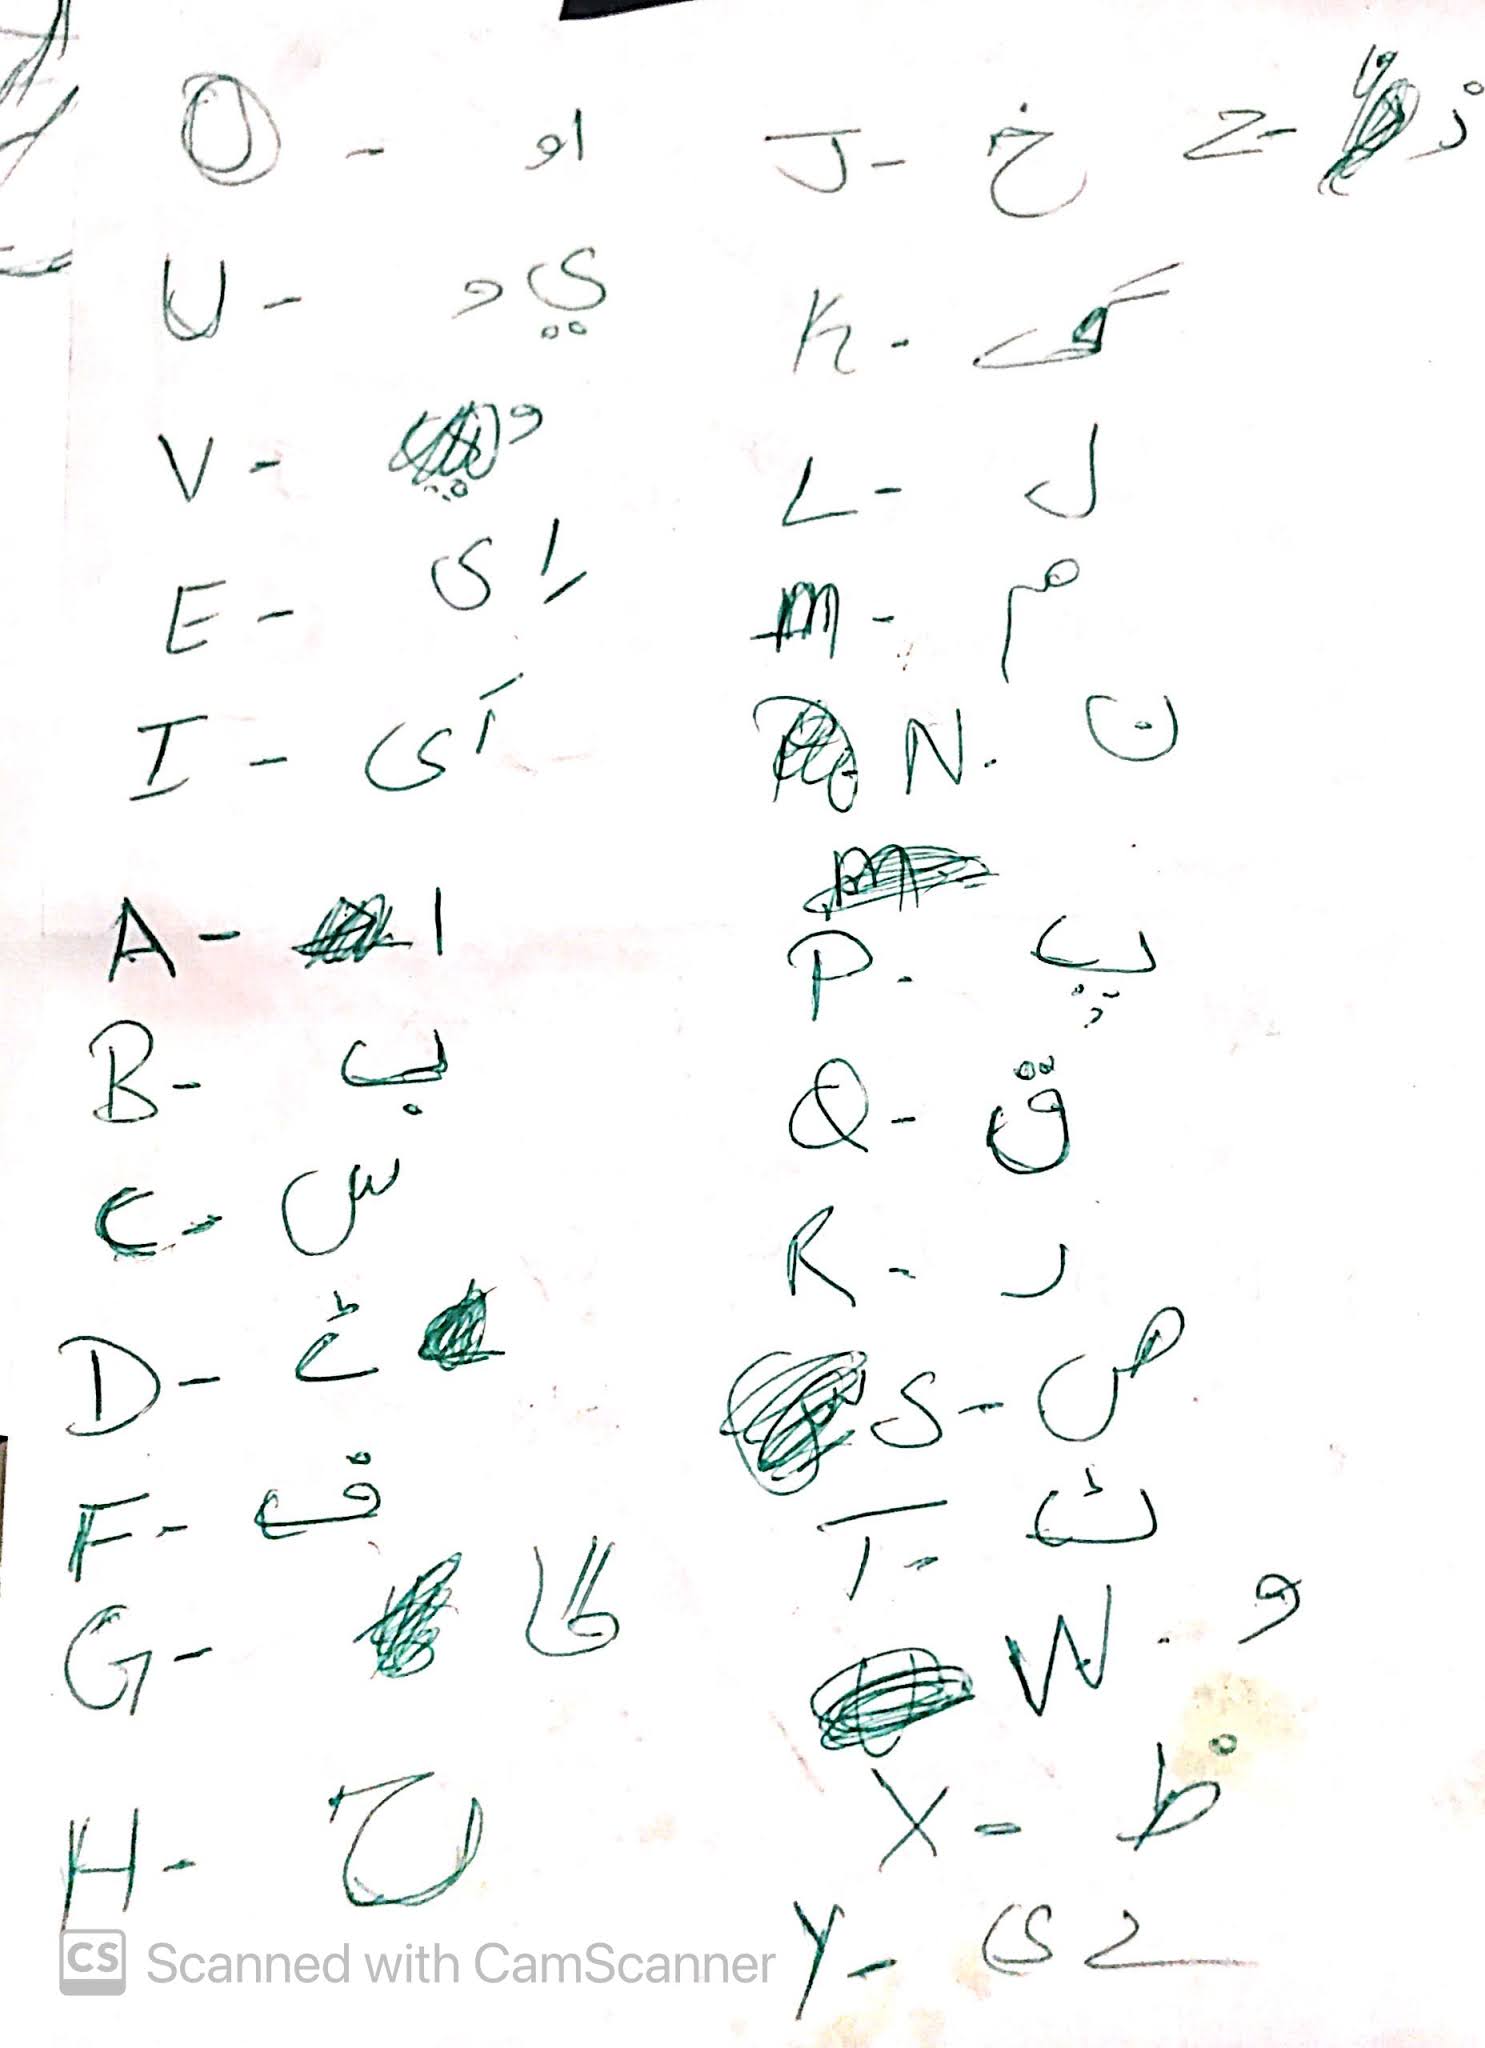 O - او
U - ي و
V - و
E - اِی
I - اَی
A - ا
B - ب
C - س
D -
F - ف
G - گا
H - ح
J - خ
K - گ
L - ل
M - م
N - ن
P - پ
Q - ق
R - ر
S - ص
T - ٹ
W - و
X - ظ
Y -
Z - ز
CS Scanned with CamScanner